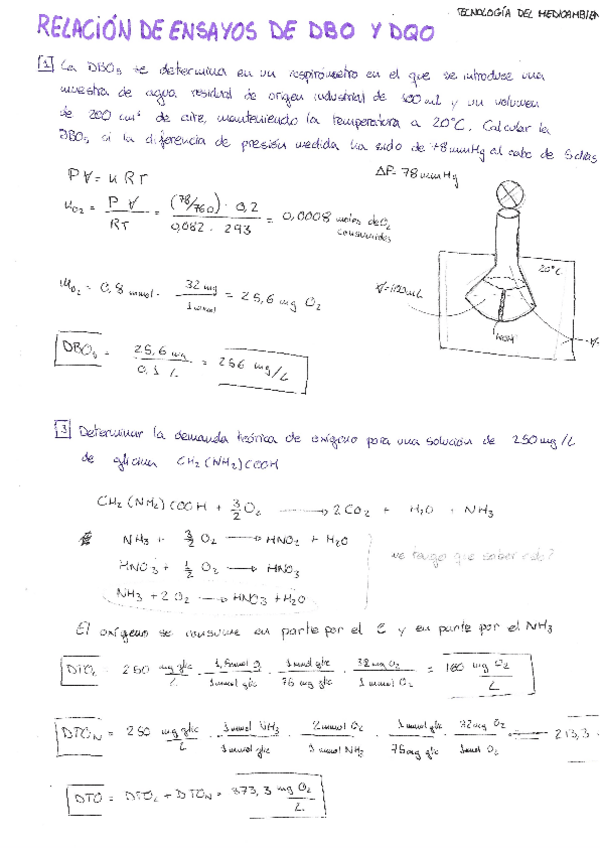 TECNOLOGÍA DEL MEDIOAMBIEN
RELACIÓN DE ENSAYOS DE DBO Y DQO
1 La DBO5 se determina en un respirómetro en el que se introduce una
muestra de agua residual de origen industrial de 100 ml y un volumen
de 200 cm³ de aire, manteniendo la temperatura a 20°C. Calcular la
DBO5 si la diferencia de presión medida ha sido de 78 mmHg al cabo de 5 días
PV = nRT
ΔP = 78 mmHg
nO2 = P V / RT = (78/760) · 0,2 / 0,082 · 293 = 0,0008 moles de O2 consumidos
20°C
V=100mL
mO2 = 0,8 mmol · 32 mg / 1 mmol = 25,6 mg O2
DBO5 = 25,6 mg / 0,1 L = 256 mg/L
3 Determinar la demanda teórica de oxígeno para una solución de 250 mg/L
de glicina CH2(NH2)COOH
CH2(NH2)COOH + 3/2 O2 → 2CO2 + H2O + NH3
NH3 + 3/2 O2 → HNO2 + H2O
HNO3 + 1/2 O2 → HNO3
me tengo que saber esto?
NH3 + 2O2 → HNO3 + H2O
El oxígeno se consume en parte por el C y en parte por el NH3
DTOC = 250 mg glic / L · 1,5 mmol O2 / 1 mmol glic · 1 mmol glic / 75 mg glic · 32 mg O2 / 1 mmol O2 = 160 mg O2 / L
DTON = 250 mg glic / L · 1 mmol NH3 / 1 mmol glic · 2 mmol O2 / 1 mmol NH3 · 1 mmol glic / 75 mg glic · 32 mg O2 / 1 mmol O2 = 213,3
DTO = DTOC + DTON = 373,3 mg O2 / L